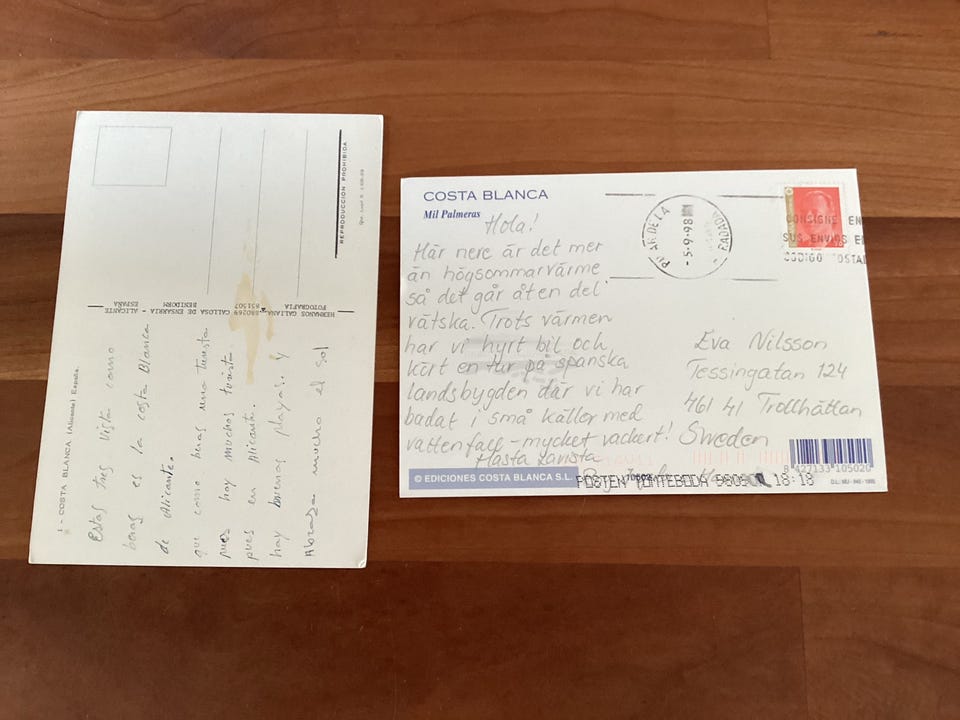 1 - COSTA BLANCA (Alicante) España.
Estas tres vista como
beras es la costa Blanca
de Alicante.
que como beras uno turista
pues hay muchos turista
pues en Alicante.
hay buenas playas y
mucho el sol
HERMANOS GALIANA
FOTOGRAFIA
880269
851507
CALLOSA DE ENSARRIA
BENIDORM
ALICANTE
ESPAÑA
REPRODUCCION PROHIBIDA
COSTA BLANCA
Mil Palmeras
Hola!
Här nere är det mer
än högsommarvärme
så det går åt en del
vätska. Trots värmen
har vi hyrt bil och
kört en tur på spanska
landsbygden där vi har
badat i små källor med
vattenfall - mycket vackert!
Hasta la vista
© EDICIONES COSTA BLANCA S.L.
PILAR DE LA
-5.-9.-98
RADADA
CONSIGNE EN
SUS ENVIOS E
CODIGO POSTAL
Eva Nilsson
Tessingatan 124
461 41 Trollhättan
Sweden
8 427133 105020
POSTEN TOMTEBODA 18:18